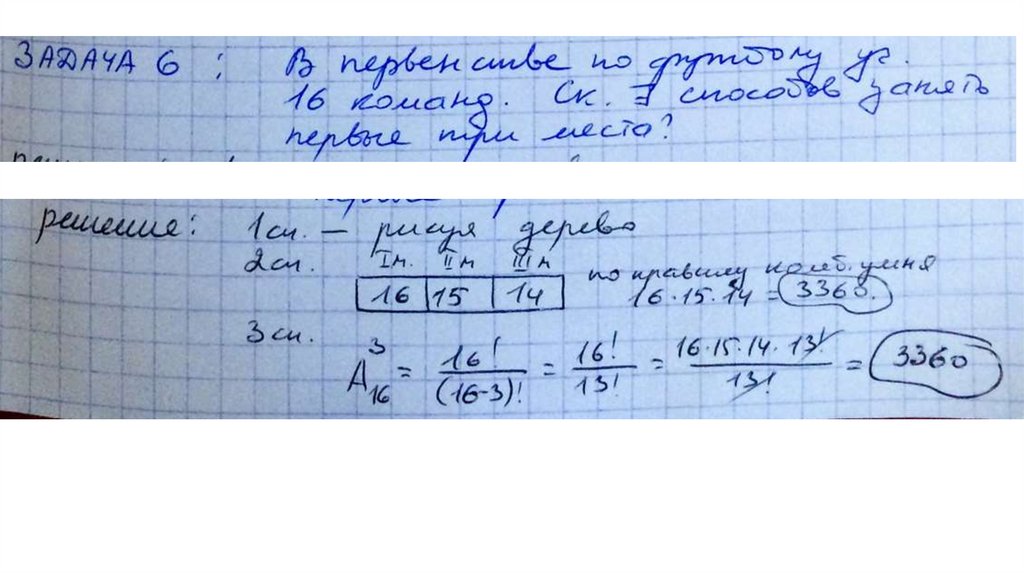 ЗАДАЧА 6 : В первенстве по футболу уч.
16 команд. Ск. ∃ способов занять
первые три места?
решение: 1сп. — рисуя дерево
2сп. Iм. IIм IIIм
16 15 14 по правилу комб. умня
16·15·14 = 3360.
3сп. A₁₆³ = 16!/(16-3)! = 16!/13! = 16·15·14·13!/13! = 3360